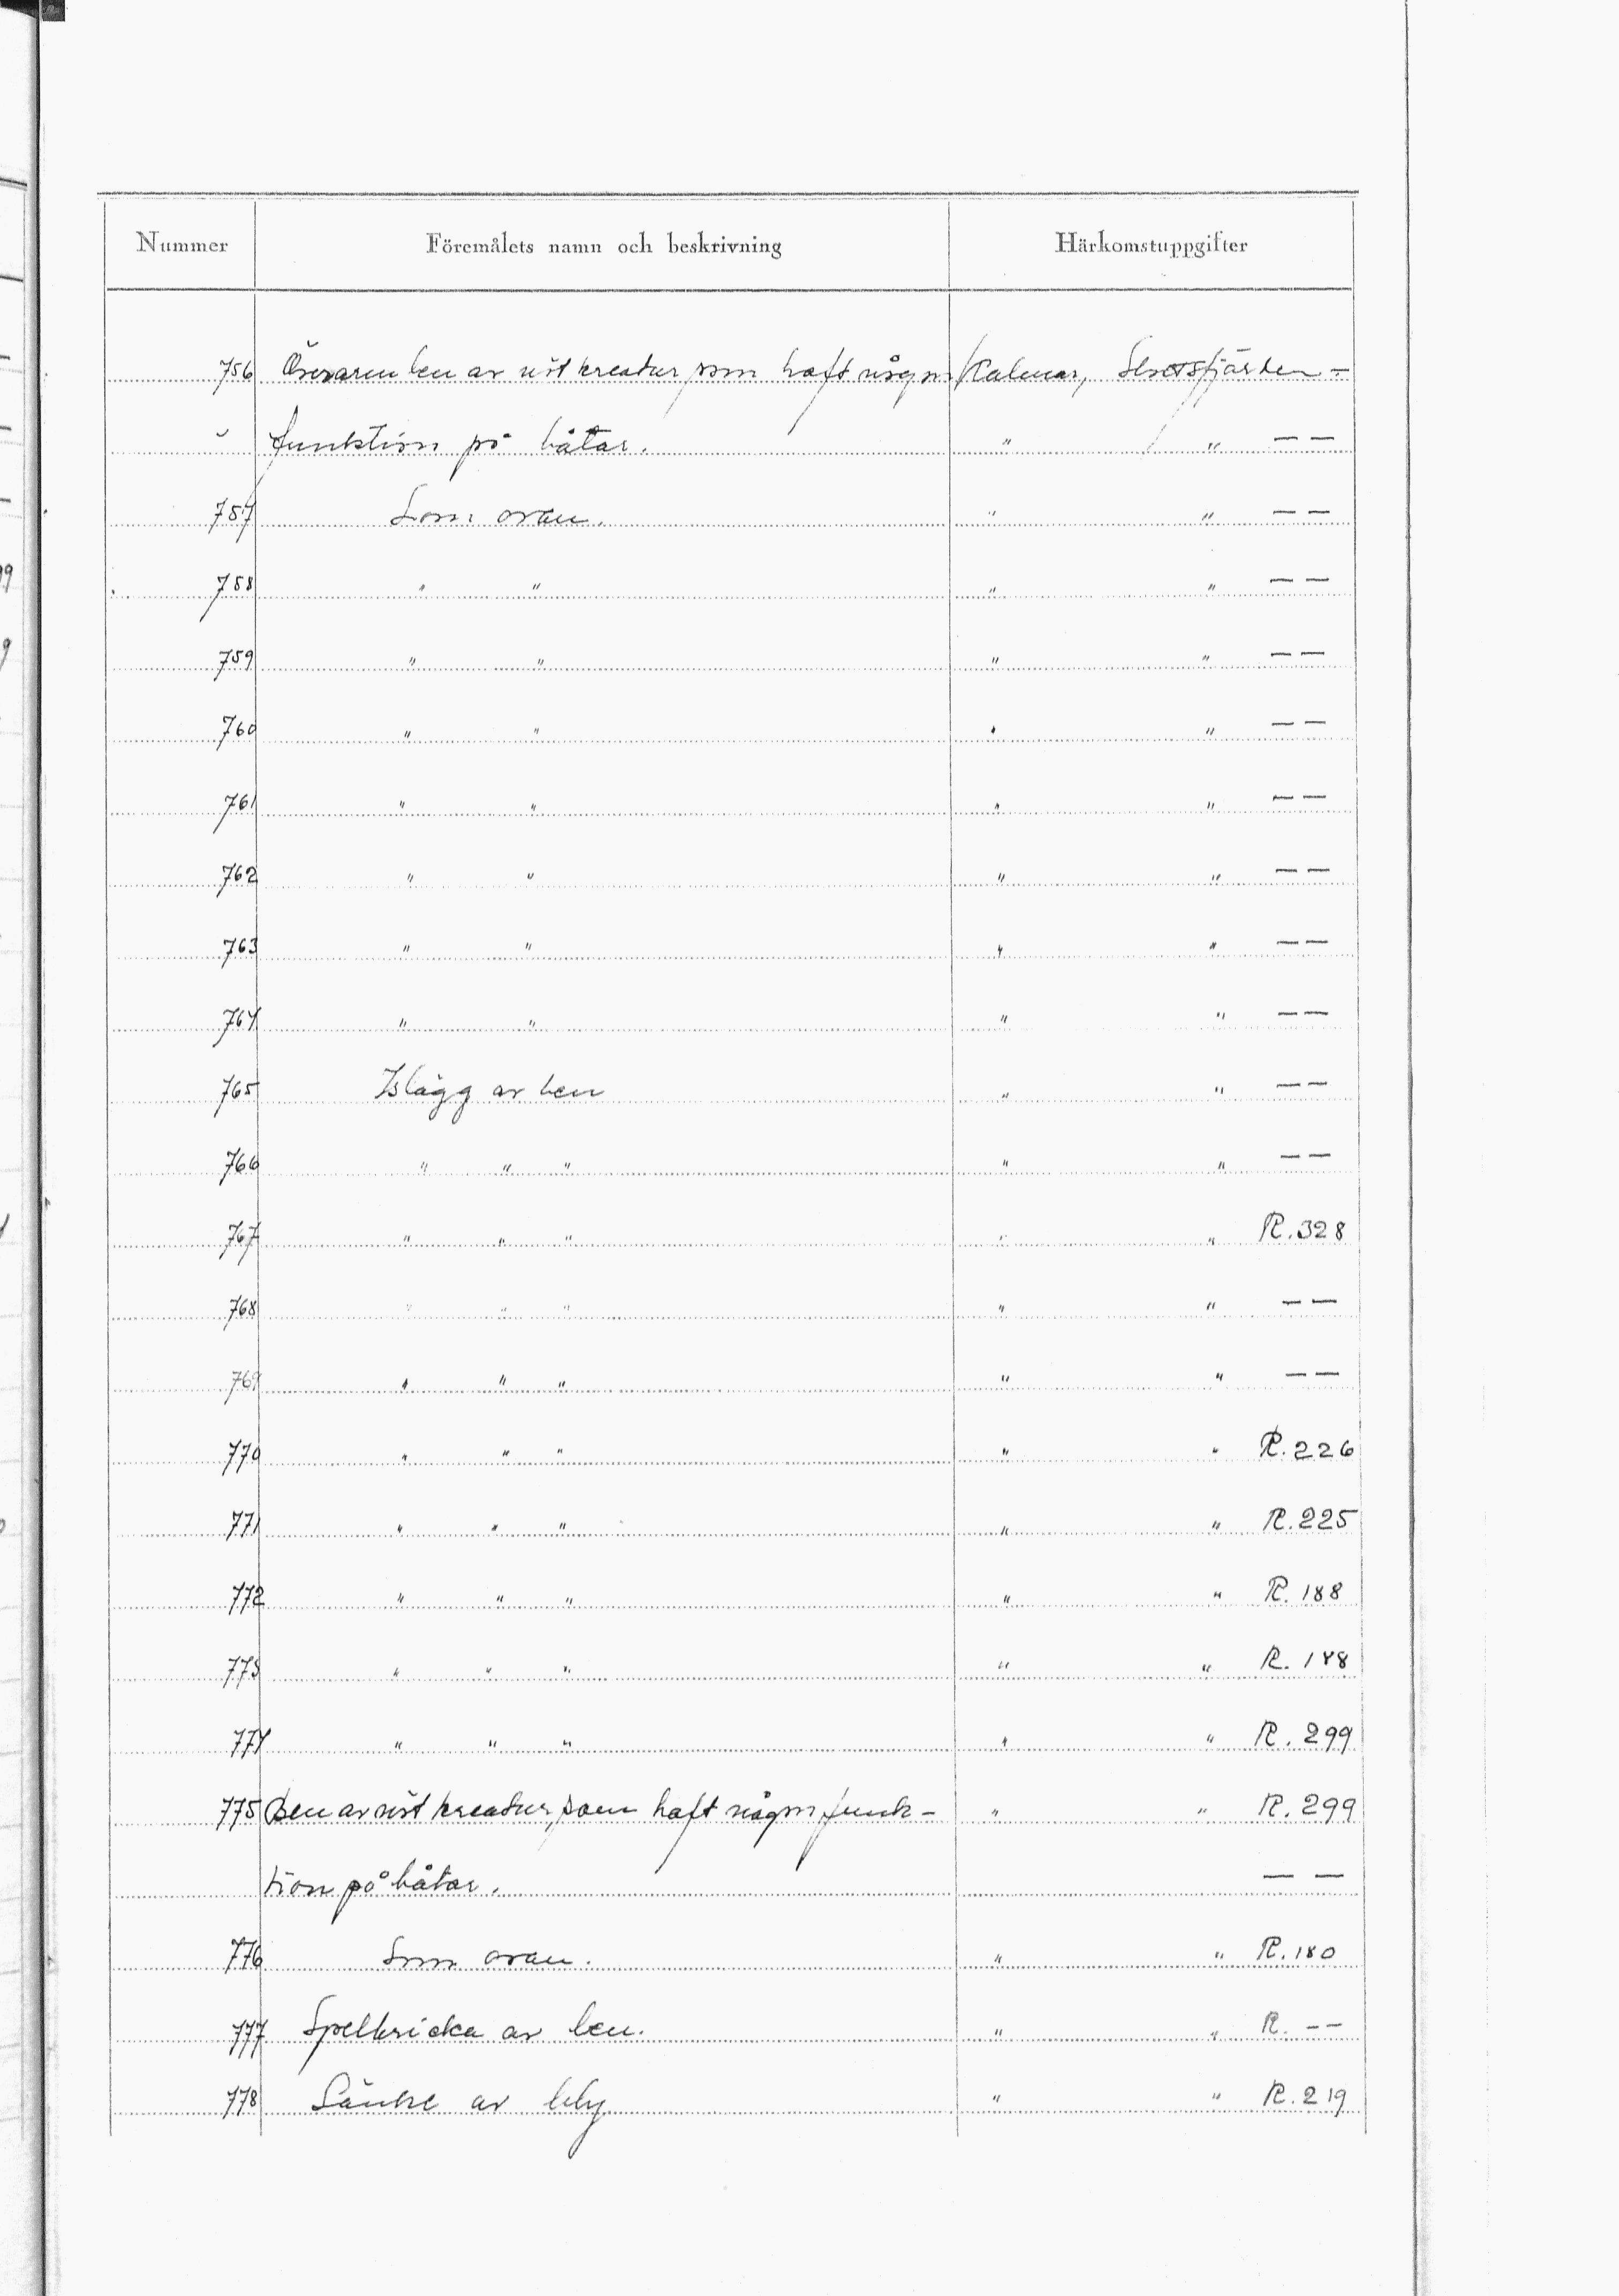 Nummer Föremålets namn och beskrivning Härkomstuppgifter
756 Överarmben av nöt kreatur som haft någon Kalmar, Slottsfjärden —
" funktion på båtar. " " — —
757 Som ovan. " " — —
758 " " " " — —
759 " " " " — —
760 " " " " — —
761 " " " " — —
762 " " " " — —
763 " " " " — —
764 " " " " — —
765 Islägg av ben " " — —
766 " " " " " — —
767 " " " " " R. 328
768 " " " " " — —
769 " " " " " — —
770 " " " " " R. 226
771 " " " " " R. 225
772 " " " " " R. 188
773 " " " " " R. 188
774 " " " " " R. 299
775 Ben av nöt kreatur, som haft någon funk- " " R. 299
tion på båtar. — —
776 Som ovan. " " R. 180
777 Spelbricka av ben. " " R. — —
778 Sänke av bly " " R. 219